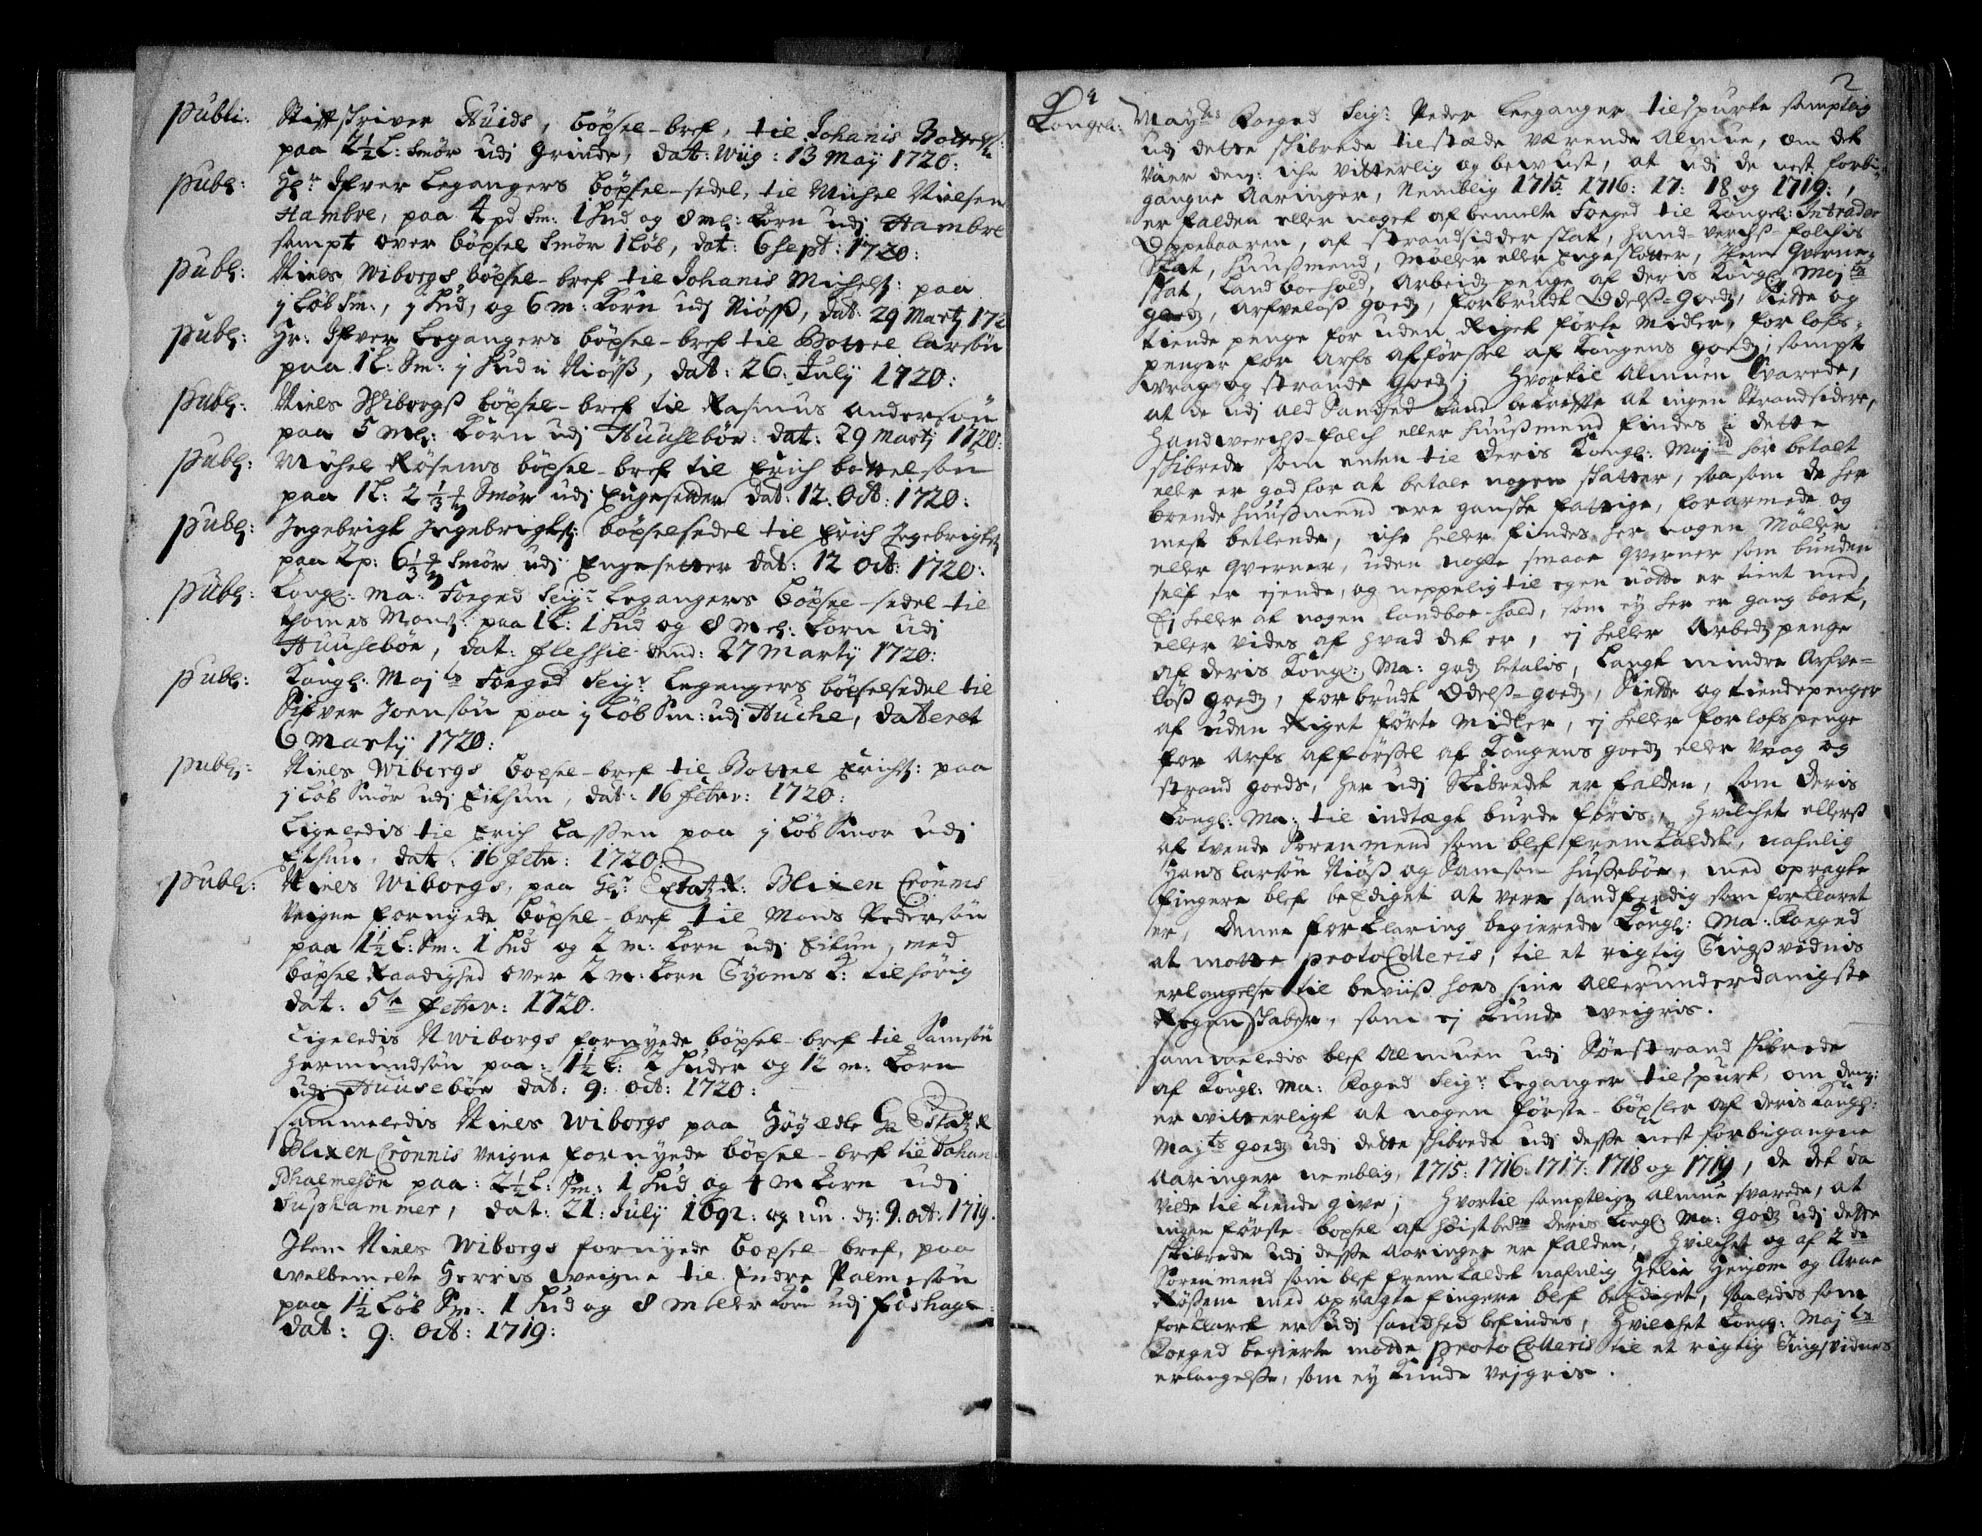 Publ: Stiftskriver Huids, böxsel-bref, til Johanis Bottels:
paa 2½ L: Smör udj Grinde, dat: Wiig: 13 May 1720:
Publ: Hr Ifver Legangers böxsel-sedel, til Michel Nielsen
Hambre, paa 4 pd Sm: 1 Hud og 8 ml: Korn udj Hambre
sampt over böxsel Smör 1 Löb, dat: 6 Sept: 1720:
Publ: Niels Wiborgs böxsel-bref til Johanis Michels: paa
j Löb Sm:, j Hud, og 6 m: Korn udj Niöss, dat: 29 Marty 172
Publ: Hr: Ifver Legangers böxsel-bref til Bottel Larsön
paa 1 L: Sm: j Hud i Niöss, dat: 26: July 1720:
Publ: Niels Wiborgs böxsel-bref til Rasmus Andersön
paa 5 ml: Korn udj Huuseböe: dat: 29 marty 1720:
Publ: Michel Rösems böxsel-bref til Erich bottelsön
paa 1 L: 2⅓ Smör udj Engesetter dat: 12: Oct: 1720:
Publ: Ingebrigt Ingebrigts: böxselsedel til Erich Ingebrigts
paa 2 p: 6⅓ Smör udj Engesetter dat: 12 Oct: 1720:
Publ: Kongl: Ma: Foeged Seigr Legangers böxsel-sedel til
Thomes Mons: paa 1 L: 1 Hud og 8 Ml: Korn udj
Huuseböe, dat: flessie-dend: 27 Marty 1720:
Publ: Kongl: Majts Foeged Seigr Legangers böxselsedel til
Sifver Joensön paa j Löb Sm: udj Huche, datteret
6 Marty 1720:
Publ: Niels Wibergs böxsel-bref til Bottel Erichs: paa
j Löb Smör udj Eithun, dat: 16 febr: 1720:
Ligeledis til Erich Lassen paa j Löb Smör udj
Ethun, dat: 16 febr: 1720:
Publ: Niels Wiborgs, paa Hr Estatz R: Blixen Crönnis
Veigne fornyede böxsel-bref til Mons Pedersön
paa 1½ L: Sm: 1 Hud og 2 m: Korn udj Eitun, med
böxsel Raadighed over 2 m: Korn Tyoms K: tilhörig
dat: 5te febr: 1720.
Ligeledis N Wiborgs fornyede böxsel-bref til Samsön
Hermundsön paa: 1½ L: 2 Huder og 12 m: Korn
udj Huuseböe dat: 9: Oct: 1720:
Sammeledis Niels Wiborgs paa Höyædle Hr Estatz R
Blixen Crönnis veigne fornyede böxsel-bref til Johan
Phalmesön paa: 2½ L: Sm: 1 Hud og 4 m Korn udj
Suphammer, dat: 21: July 1692: og nu d: 9: oct: 1719.
Item Niels Wiborgs fornyede böxsel-bref, paa
welbemelte Herris weigne til Endre Palmesön
paa 1½ Löb Sm: 1 Hud og 8 meller Korn udj Foshage
dat: 9: Oct: 1719:
2
Kongel: Mayts Foeged Seigr Peder Leganger tilspurte samptlig
udj dette skibrede tilstæde værende Almue, om det
var dem: iche vitterlig og bevust, at udj de nest forbi-
gangne Aaringer, Nemblig 1715: 1716: 17: 18 og 1719:,
er falden eller noget af bemelte Foeged til Kongel: Intrader
Oppebaaren, af strandsidder skat, hand-verchs-folchis
skat, huusmend, Möller eller Engeslotter, Item Qverne-
skat, Landboehold, Arbeids penge af deris Kongl Majts
Goeds, Arfvelöss goeds, forbrudt Odels-Goeds, Siette og
tiende penge for uden Riget förte Midler, forlofs-
penger for Arfs afförssel af Kongens goeds, sampt
wrag og strande Goeds; Hvortil Almuen Svarede,
at de udj ald Sandhed Kand bekrefte at ingen Strandsidere,
Handverchs-folch eller huusmend findes i dette
skibrede som enten til Deris Kongl: Majtt har betalt
eller er god for at betale nogen skatter, saasom de her
boende huusmend ere ganske fattige, forarmede og
mest betlende, iche heller findes her nogen Möller
eller Qverner, uden nogle smaae qverner som bunden
self er ejende, og neppelig til egen nötte er tient med,
Ej heller at nogen landboe-hold, som ey her er gang bart,
eller vides af hvad det er, ej heller Arbeds penge
af deris Kongl: Ma: gods betalis, Langt mindre Arfve-
löss goeds, forbrudt Odels-goeds, Siette og tiendepenger
af uden Riget förte midler, ej heller forlofspenge
for Arfs afförssel af Kongens goeds eller Vrag og
strand goeds, her udj Skibredet er falden, som Deris
Kongl: Ma: til indtægt burde föris, Hvilchet ellerss
af tvende Sorenmend som blef fremkaldet, nafnlig
Hans Larsön Niöss og Samson Husseböe, med opragte
fingere blef beEdiget at vere sandferdig som forklaret
er, Denne forklaring begierede Kongl: Ma: Foeged
at motte protoColleris, til et rigtig Tingsvidnis
erlangelse til beviiss hoes sine Allerunderdanigste
Regenskaber, som ej Kunde weigris.
Sammeledis blef Almuen udj Söestrand skibrede
af Kongl: Ma: Foged Seigr Leganger tilspurt, om dem:
er vitterligt at nogen förste-böxsler af deris Kongl:
Majts goeds udj dette skibrede udj desse nest forbigangne
Aaringer nemblig, 1715: 1716: 1717: 1718 og 1719, de det da
vilde tilkiende give; Hvortil samptlig Almue svarede, at
ingen förste-böxsel af höistbete Deris Kongl: Ma: Gods udj dette
skibrede udj desse Aaringer er falden, Hvilchet og af 2de
Sorenmend som blef fremkaldet nafnlig Helie Henjom og Arne
Rössem med opragte fingere blef beEdiget, saaledis som
forklaret er udj sandhed befindes, Hvilchet Kongl: Majts
Foeged begierte motte protoColleris til et rigtig Tingsvidnes
erlangelsse, som ey Kunde vejgris.